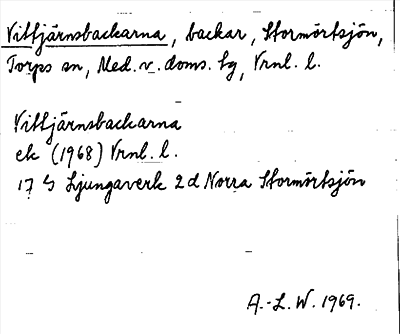 Vittjärnsbackarna, backar, Stormörtsjön,
Torps sn, Med. v. doms. tg, Vrnl. l.
Vittjärnsbackarna
ek (1968) Vrnl. l.
17 G Ljungaverk 2d Norra Stormörtsjön
A.-L. W. 1969.